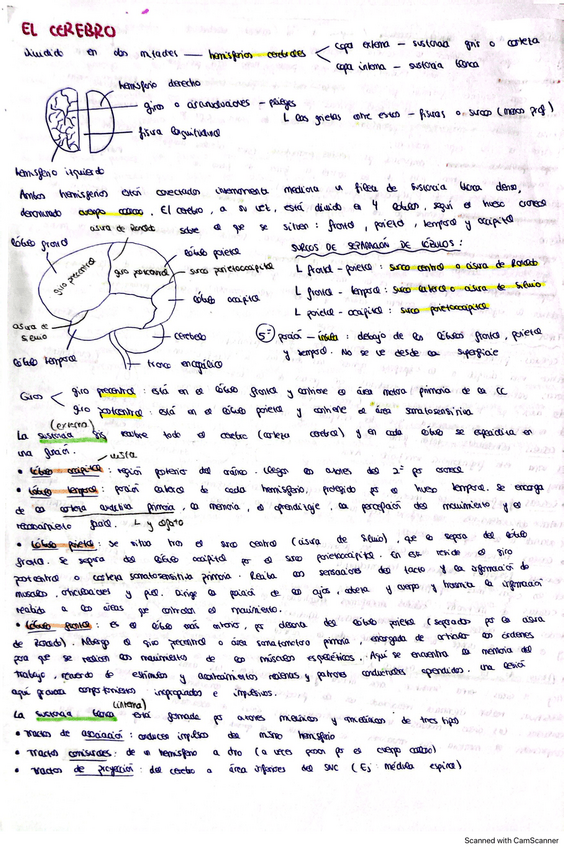 EL CEREBRO
dividido en dos mitades — hemisferios cerebrales < capa externa - sustancia gris o corteza
capa interna - sustancia blanca
hemisferio derecho
giro o circunvoluciones - pliegues
L las grietas entre estos - fisuras o surco (menos prof)
fisura longitudinal
hemisferio izquierdo
Ambos hemisferios están conectados internamente mediante un fibra de sustancia blanca densa,
denominado cuerpo calloso. El cerebro, a su vez, está dividido en 4 lóbulos, según el hueso craneal
sobre el que se sitúen: frontal, parietal, temporal y occipital
cisura de Rolando
lóbulo frontal
giro precentral
giro postcentral
lóbulo parietal
surco parietooccipital
lóbulo occipital
cisura de Silvio
lóbulo temporal
cerebelo
tronco encefálico
SURCOS DE SEPARACIÓN DE LÓBULOS:
L frontal - parietal: surco central o cisura de Rolando
L frontal - temporal: surco lateral o cisura de Silvio
L parietal - occipital: surco parietooccipital
5º porción - ínsula: debajo de los lóbulos frontal, parietal
y temporal. No se ve desde la superficie
Giros < giro precentral: está en el lóbulo frontal y contiene el área motora primaria de la CC
giro postcentral: está en el lóbulo parietal y contiene el área somatosensitiva
(externa)
La sustancia gris recubre todo el cerebro (corteza cerebral) y en cada lóbulo se especializa en
una función.
vista
• Lóbulo occipital: región posterior del cráneo. Llegan los axones del 2º par craneal
• Lóbulo temporal: porción lateral de cada hemisferio, protegido por el hueso temporal. Se encarga
de la corteza auditiva primaria, la memoria, el aprendizaje, la percepción del movimiento y el
reconocimiento facial. L y olfato
• Lóbulo parietal: se sitúa tras el surco central (cisura de Silvio), que lo separa del lóbulo
frontal. Se separa del lóbulo occipital por el surco parietooccipital. En este reside el giro
postcentral o corteza somatosensitiva primaria. Recibe las sensaciones del tacto y la información de
músculos, articulaciones y piel. Dirige la posición de los ojos, cabeza y cuerpo y transmite la información
recibida a las áreas que controlan el movimiento.
• Lóbulo frontal: es el lóbulo más anterior, por delante del lóbulo parietal (separados por la cisura
de Rolando). Alberga el giro precentral o área somatomotora primaria, encargada de articular las órdenes
para que se realicen los movimientos de los músculos esqueléticos. Aquí se encuentra la memoria del
trabajo, recuerdo de estímulos y acontecimientos recientes y patrones conductuales aprendidos. Una lesión
aquí provoca comportamientos inapropiados e impulsivos.
(interna)
La sustancia blanca está formada por axones mielínicos y amielínicos de tres tipos
• Tractos de asociación: conducen impulsos del mismo hemisferio
• Tractos comisurales: de un hemisferio a otro (a veces pasan por el cuerpo calloso)
• Tractos de proyección: del cerebro a áreas inferiores del SNC (Ej médula espinal)
Scanned with CamScanner